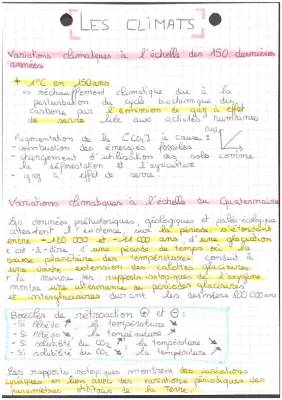 LES CLIMATS
Variations climatiques à l'échelle des 150 dernières
années
+ 1°C en 150 ans
↳ réchauffement climatique due à la
perturbation du cycle biochimique des
carbone dus à l'émission de gaz à effet
de serre liée aux activités humaines
Augmentation de la [CO2] à cause :
- combustion des énergies fossiles
- changement d'utilisation des sols comme
la déforestation et l'agriculture
- gaz à effet de serre.
Variations climatiques à l'échelle du Quaternaire
Les données préhistoriques, géologiques et paléo-écologique
attestent l'existence, sur la période s'étendant
entre -120 000 et -11 000 ans, d'une glaciation
c'est-à-dire d'une période de temps où la
baisse planétaire des températures conduit à
une vaste extension des calottes glaciaires
la mesure des rapports isotopiques de l'oxygène
montre une alternance de périodes glaciaires
et interglaciaires durant les dernières 800 000 ans
Boucles de rétroaction ⊕ et ⊖ :
- Si albédo ↗, la température ↘
- Si albédo ↘, la température ↗
- Si solubilité du CO2 ↗, la température ↘
- Si solubilité du CO2 ↘, la température ↗
Les rapports isotopiques montrent des variations
cycliques en lien avec des variations périodiques des
paramètres orbitaux de la Terre.